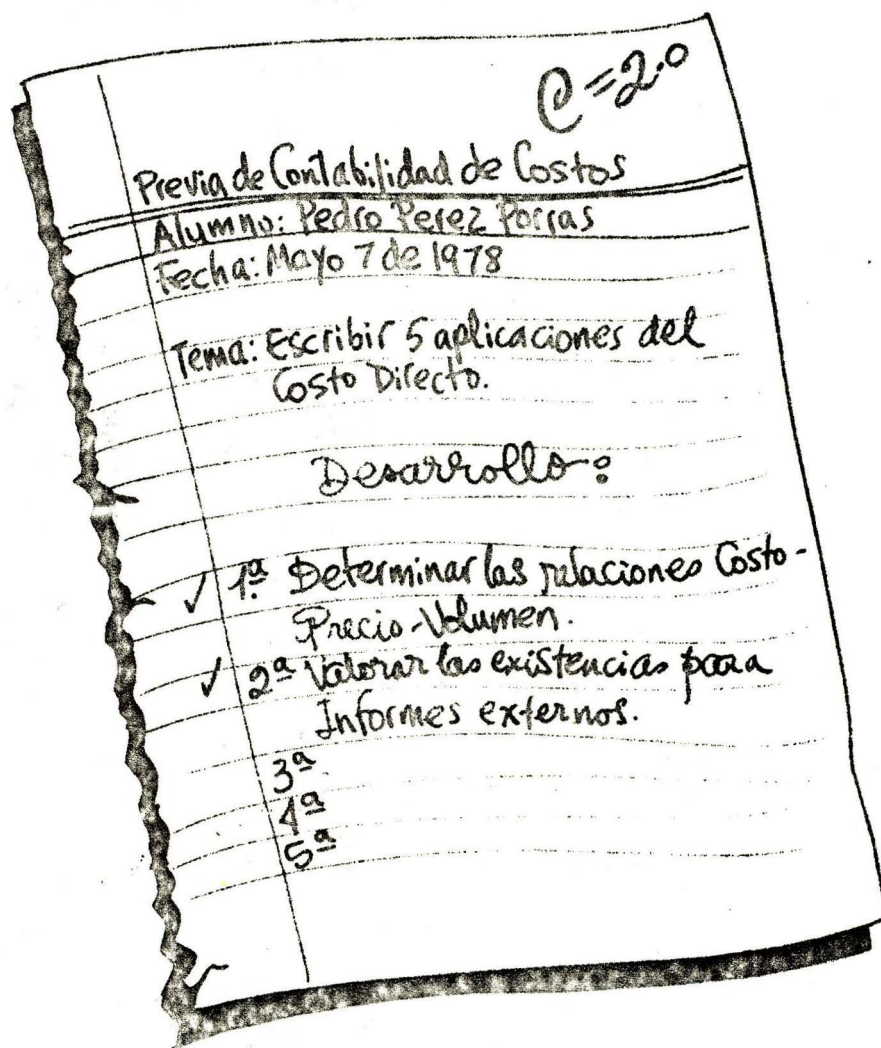 C=2.0
Previa de Contabilidad de Costos
Alumno: Pedro Perez Porras
Fecha: Mayo 7 de 1978
Tema: Escribir 5 aplicaciones del
Costo Directo.
Desarrollo:
✓ 1ª Determinar las relaciones Costo-
Precio-Volumen.
✓ 2ª Valorar las existencias para
Informes externos.
3ª
4ª
5ª